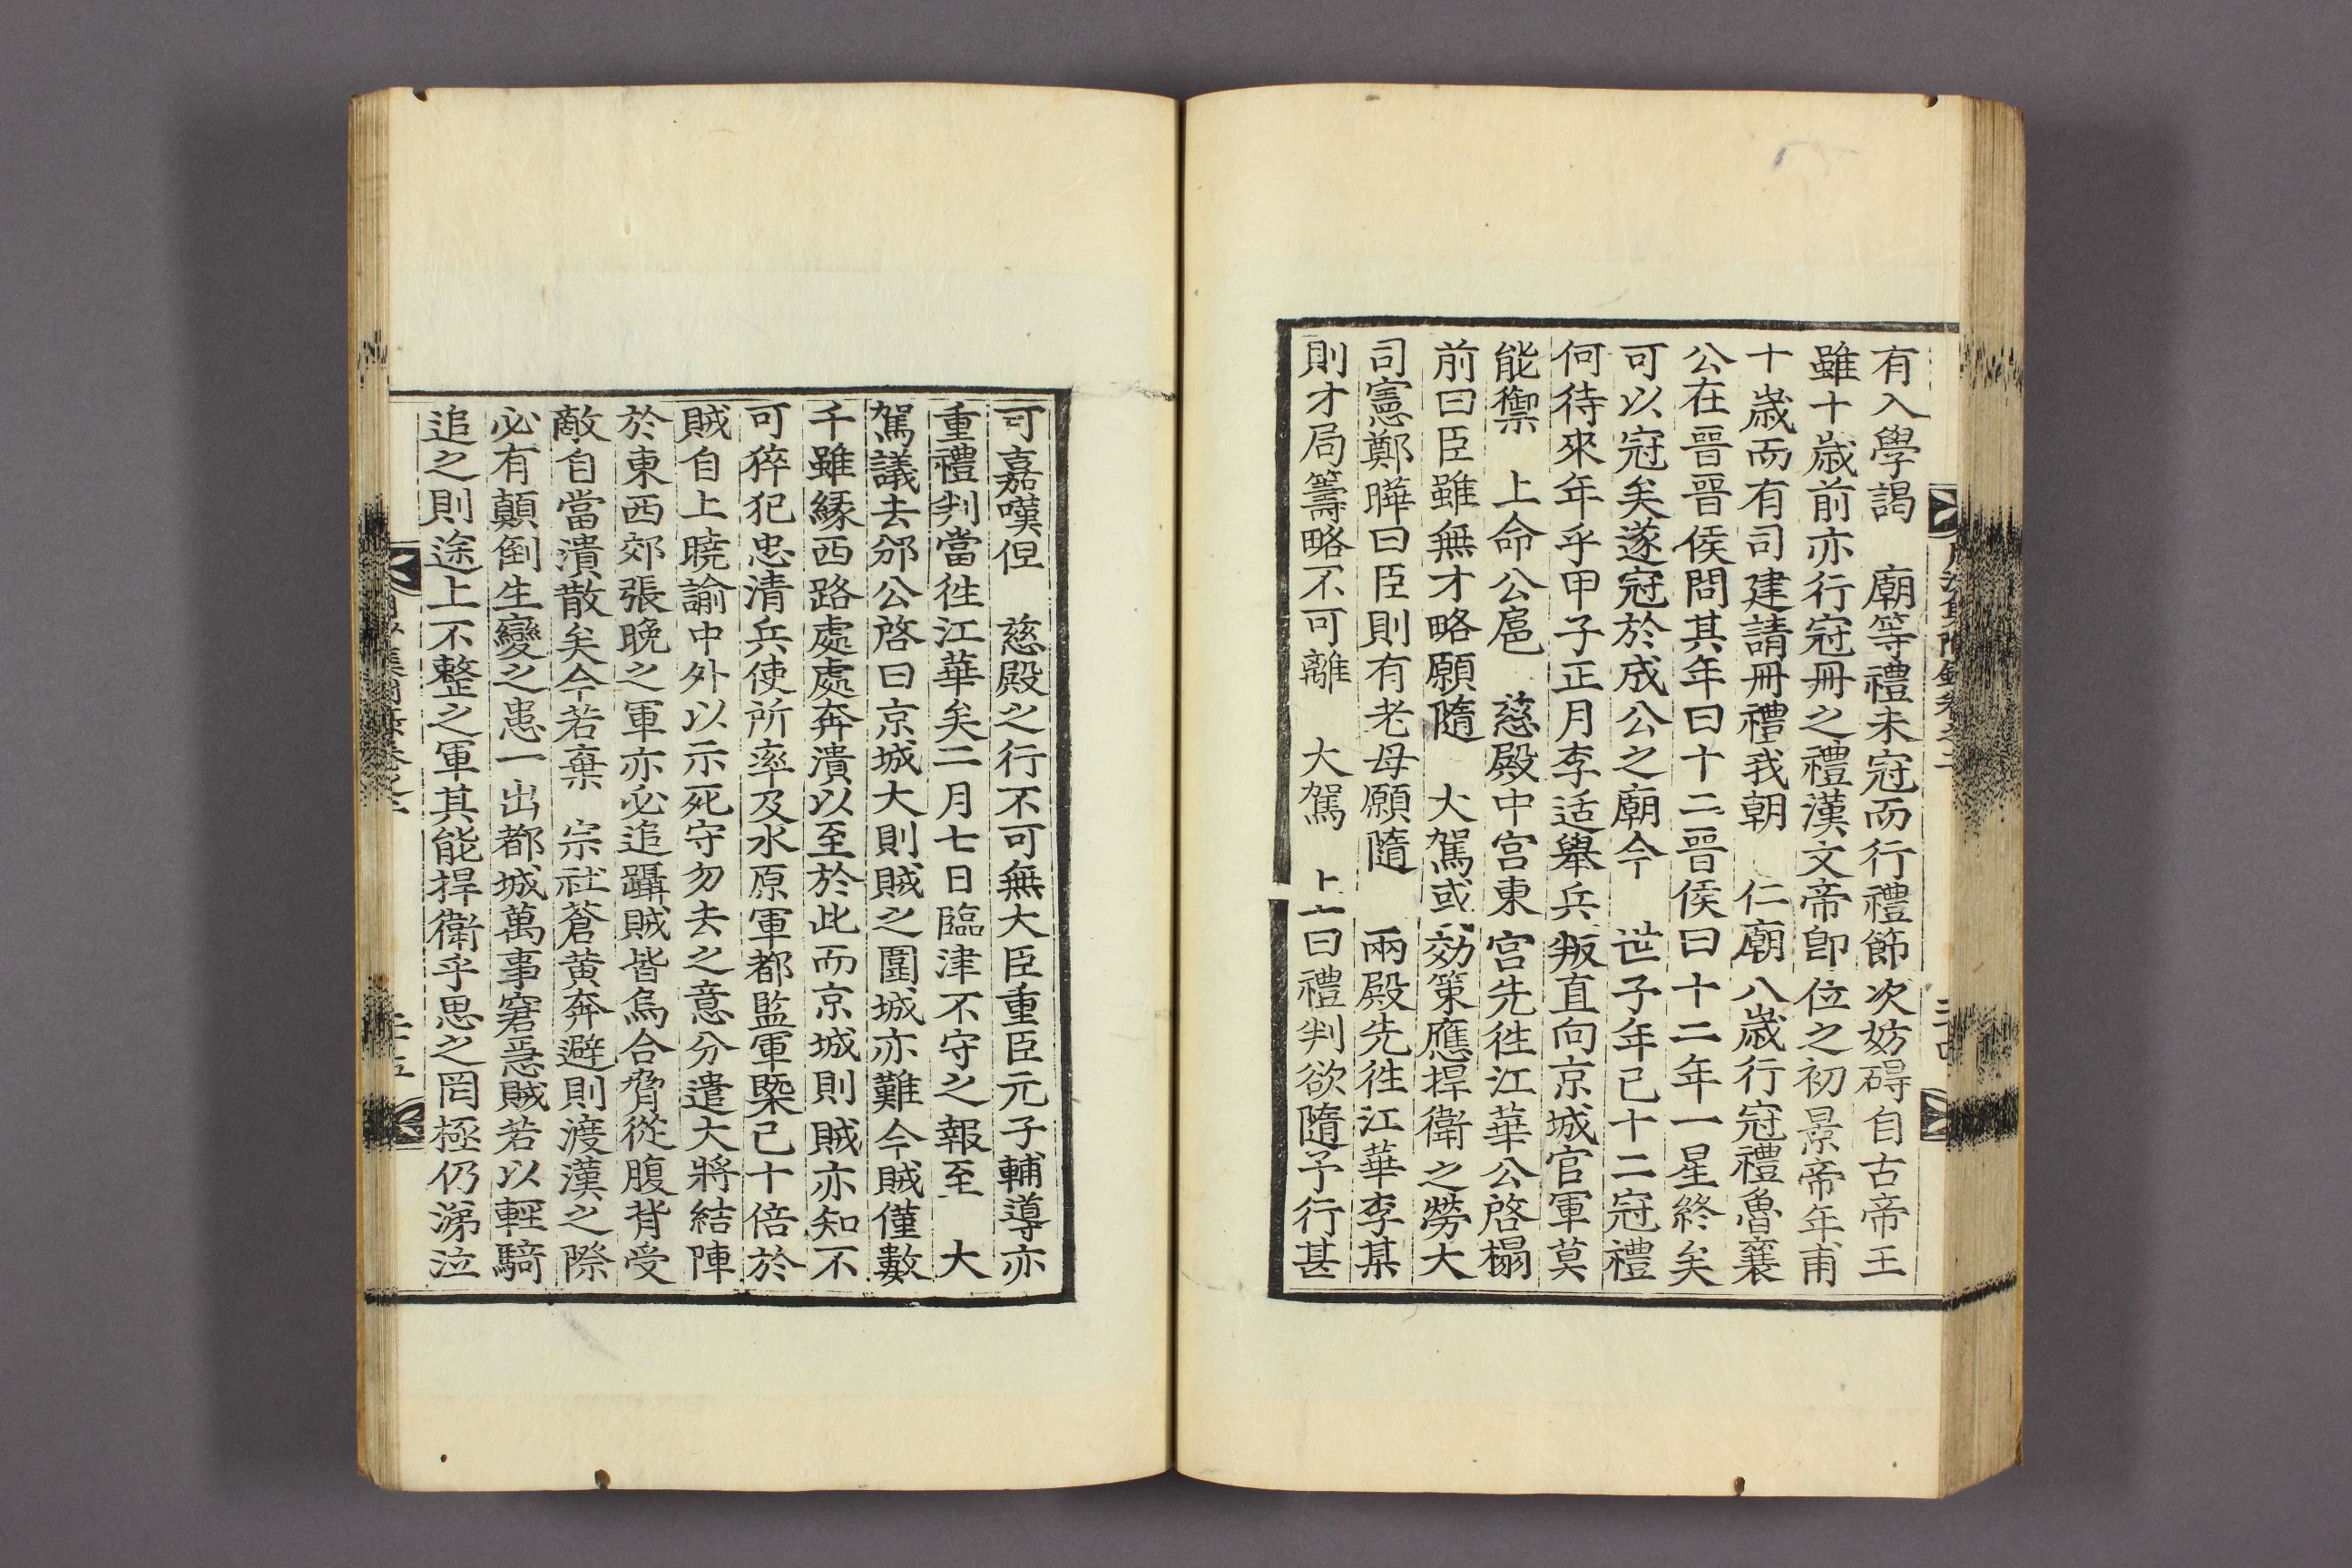 有入學謁　廟等禮未冠而行禮節次妨碍自古帝王
雖十歲前亦行冠冊之禮漢文帝卽位之初景帝年甫
十歲而有司建請冊禮我朝　仁廟八歲行冠禮魯襄
公在晉晉侯問其年曰十二晉侯曰十二年一星終矣
可以冠矣遂冠於成公之廟今　世子年已十二冠禮
何待來年乎甲子正月李适舉兵叛直向京城官軍莫
能禦　上命公扈　慈殿中宮東宮先徃江華公啓榻
前曰臣雖無才略願隨　大駕或效策應捍衛之勞大
司憲鄭曄曰臣則有老母願隨　兩殿先徃江華李某
則才局籌略不可離　大駕　上曰禮判欲隨予行甚
可嘉嘆但　慈殿之行不可無大臣重臣元子輔導亦
重禮判當徃江華矣二月七日臨津不守之報至　大
駕議去邠公啓曰京城大則賊之圍城亦難今賊僅數
千雖緣西路處處奔潰以至於此而京城則賊亦知不
可猝犯忠清兵使所率及水原軍都監軍槩已十倍於
賊自上曉諭中外以示死守勿去之意分遣大將結陣
於東西郊張晚之軍亦必追躡賊皆烏合脅從腹背受
敵自當潰散矣今若棄　宗社蒼黃奔避則渡漢之際
必有顚倒生變之患一出都城萬事窘急賊若以輕騎
追之則途上不整之軍其能捍衛乎思之罔極仍涕泣